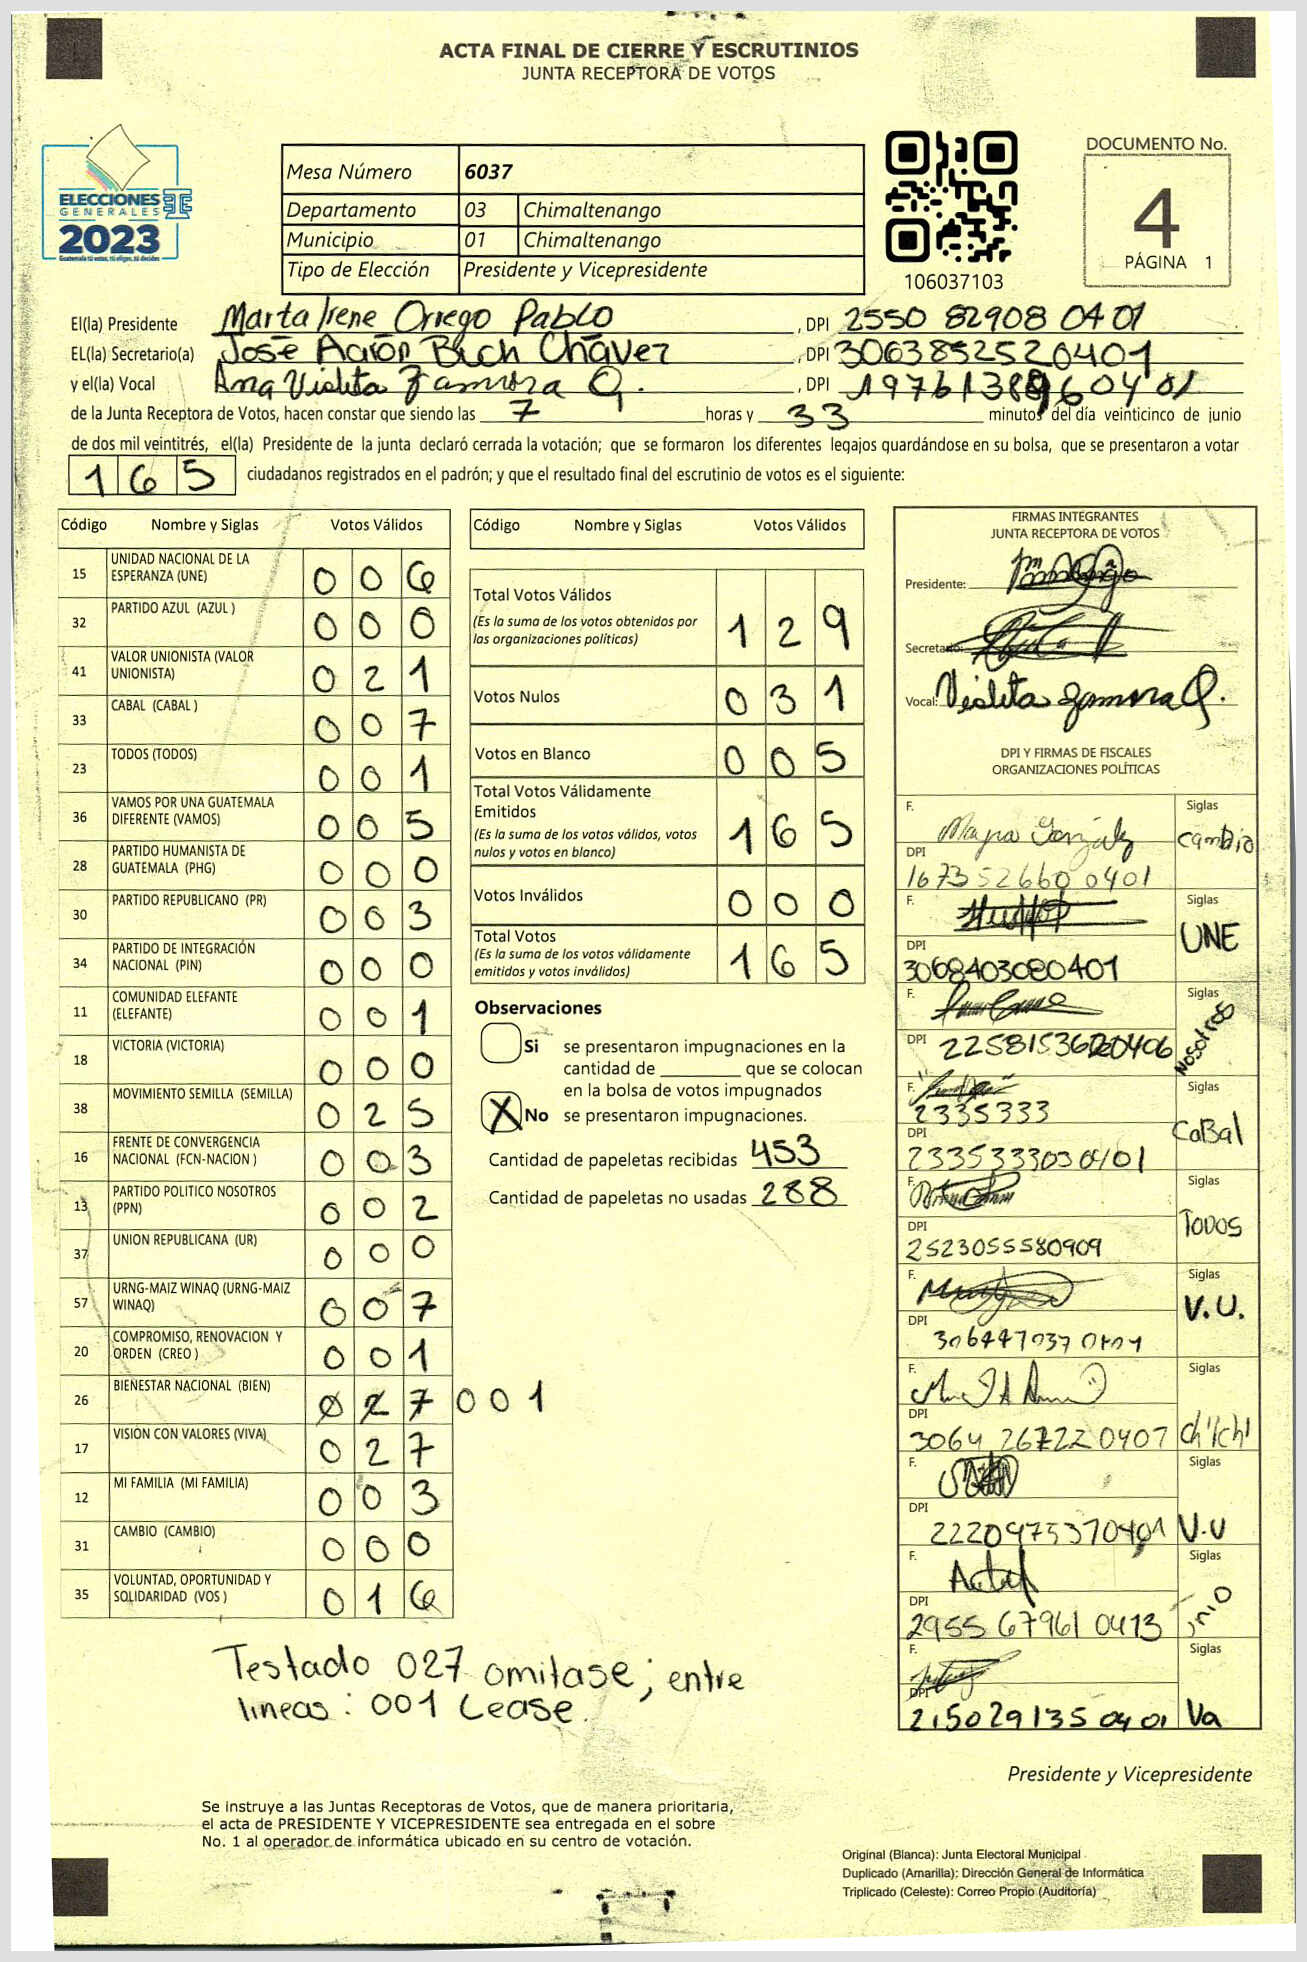 ACTA FINAL DE CIERRE Y ESCRUTINIOS
JUNTA RECEPTORA DE VOTOS
ELECCIONES
GENERALES
2023
Guatemala tú votas, tú eliges, tú decides
Mesa Número 6037
Departamento 03 Chimaltenango
Municipio 01 Chimaltenango
Tipo de Elección Presidente y Vicepresidente
106037103
DOCUMENTO No.
4
PÁGINA 1
El(la) Presidente Marta Irene Orrego Pablo, DPI 2550 82908 0401
EL(la) Secretario(a) José Aarón Bich Chávez, DPI 3063852520401
y el(la) Vocal Ana Violeta Zamora Q., DPI
de la Junta Receptora de Votos, hacen constar que siendo las 7 horas y 33 minutos del día veinticinco de junio
de dos mil veintitrés, el(la) Presidente de la junta declaró cerrada la votación; que se formaron los diferentes legajos guardándose en su bolsa, que se presentaron a votar
165 ciudadanos registrados en el padrón; y que el resultado final del escrutinio de votos es el siguiente:
Código Nombre y Siglas Votos Válidos
15 UNIDAD NACIONAL DE LA ESPERANZA (UNE) 0 0 6
32 PARTIDO AZUL (AZUL ) 0 0 0
41 VALOR UNIONISTA (VALOR UNIONISTA) 0 2 1
33 CABAL (CABAL ) 0 0 7
23 TODOS (TODOS) 0 0 1
36 VAMOS POR UNA GUATEMALA DIFERENTE (VAMOS) 0 0 5
28 PARTIDO HUMANISTA DE GUATEMALA (PHG) 0 0 0
30 PARTIDO REPUBLICANO (PR) 0 0 3
34 PARTIDO DE INTEGRACIÓN NACIONAL (PIN) 0 0 0
11 COMUNIDAD ELEFANTE (ELEFANTE) 0 0 1
18 VICTORIA (VICTORIA) 0 0 0
38 MOVIMIENTO SEMILLA (SEMILLA) 0 2 5
16 FRENTE DE CONVERGENCIA NACIONAL (FCN-NACION ) 0 0 3
13 PARTIDO POLITICO NOSOTROS (PPN) 0 0 2
37 UNION REPUBLICANA (UR) 0 0 0
57 URNG-MAIZ WINAQ (URNG-MAIZ WINAQ) 0 0 7
20 COMPROMISO, RENOVACION Y ORDEN (CREO ) 0 0 1
26 BIENESTAR NACIONAL (BIEN) 0 2 7 0 0 1
17 VISIÓN CON VALORES (VIVA) 0 2 7
12 MI FAMILIA (MI FAMILIA) 0 0 3
31 CAMBIO (CAMBIO) 0 0 0
35 VOLUNTAD, OPORTUNIDAD Y SOLIDARIDAD (VOS ) 0 1 6
Testado 027 omitase; entre
lineas: 001 Lease.
Código Nombre y Siglas Votos Válidos
Total Votos Válidos 1 2 9
(Es la suma de los votos obtenidos por
las organizaciones políticas)
Votos Nulos 0 3 1
Votos en Blanco 0 0 5
Total Votos Válidamente
Emitidos 1 6 5
(Es la suma de los votos válidos, votos
nulos y votos en blanco)
Votos Inválidos 0 0 0
Total Votos 1 6 5
(Es la suma de los votos válidamente
emitidos y votos inválidos)
Observaciones
Si se presentaron impugnaciones en la
cantidad de ________ que se colocan
en la bolsa de votos impugnados
X No se presentaron impugnaciones.
Cantidad de papeletas recibidas 453
Cantidad de papeletas no usadas 288
FIRMAS INTEGRANTES
JUNTA RECEPTORA DE VOTOS
Presidente:
Secretario:
Vocal: Violeta Zamora Q.
DPI Y FIRMAS DE FISCALES
ORGANIZACIONES POLÍTICAS
F. Mayra González Siglas
DPI cambio
167352660 0401
F. Siglas
DPI UNE
3068403080401
F. Siglas
DPI Nosotros
F. Siglas
2335333
DPI CaBal
2335333030401
F. Siglas
DPI TODOS
2523055580909
F. Siglas
DPI V.U.
F. Siglas
DPI
3064 26722 0407
F. Siglas
DPI
2220975370401 V.U
F. Siglas
DPI
2955 67961 0413
F. Siglas
DPI
215029135 0401 Va
Presidente y Vicepresidente
Se instruye a las Juntas Receptoras de Votos, que de manera prioritaria,
el acta de PRESIDENTE Y VICEPRESIDENTE sea entregada en el sobre
No. 1 al operador de informática ubicado en su centro de votación.
Original (Blanca): Junta Electoral Municipal
Duplicado (Amarilla): Dirección General de Informática
Triplicado (Celeste): Correo Propio (Auditoría)